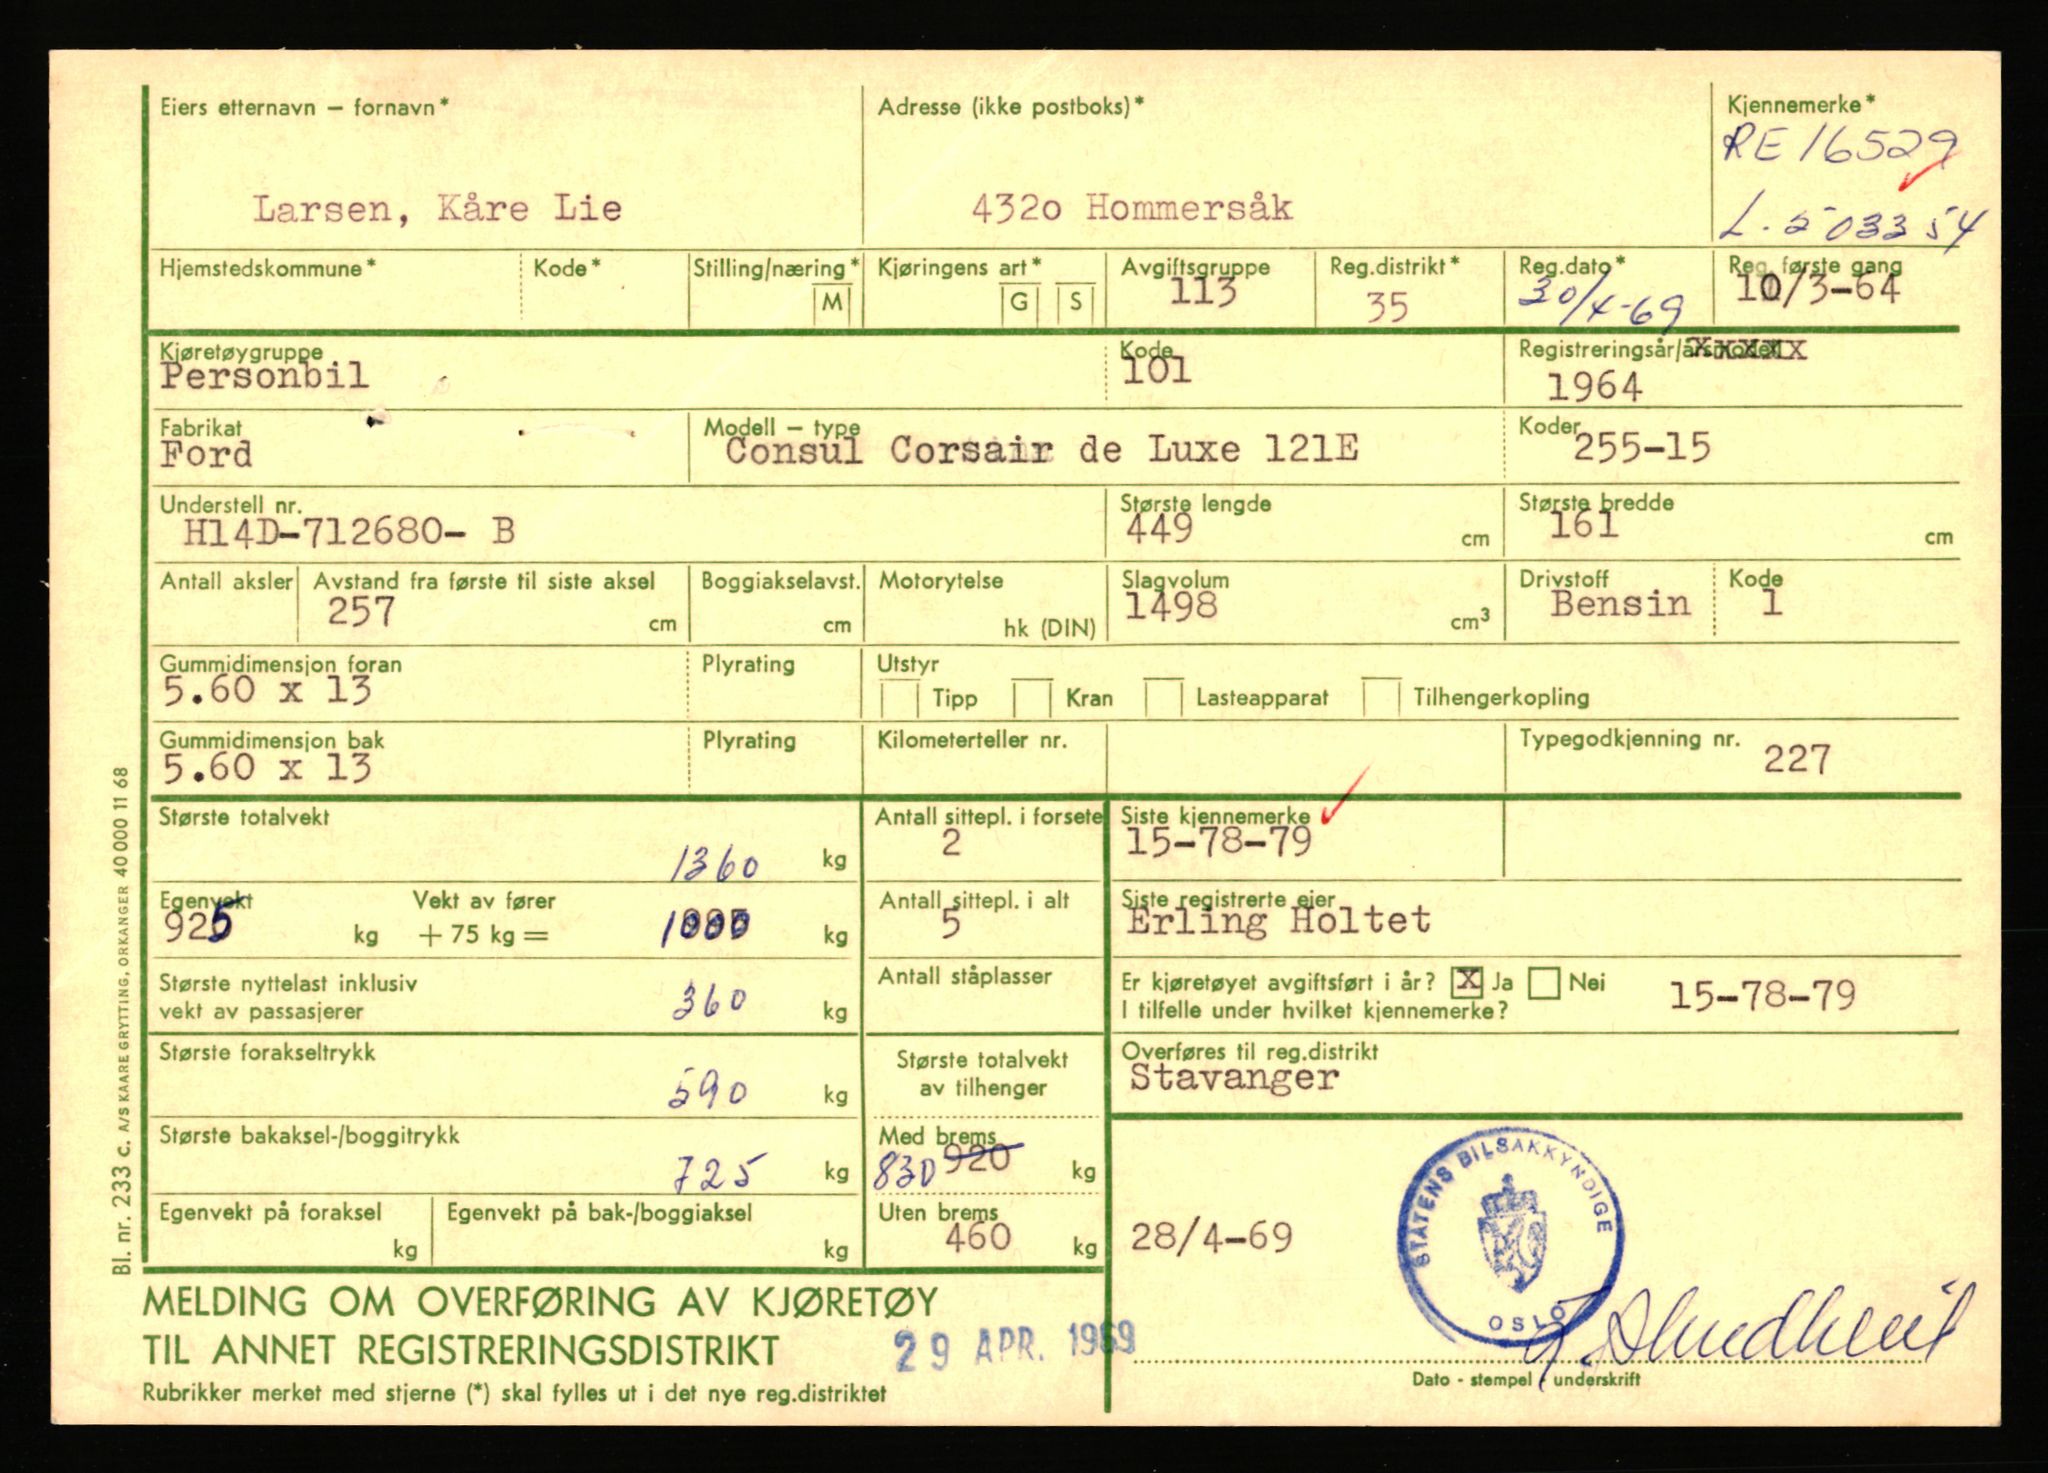 Eiers etternavn — fornavn*
Adresse (ikke postboks)*
Kjennemerke*
RE 16529
Larsen, Kåre Lie
432o Hommersåk
L. 503354
Hjemstedskommune*
Kode*
Stilling/næring*
M
Kjøringens art*
G
S
Avgiftsgruppe
113
Reg.distrikt*
35
Reg.dato*
30/4-69
Reg. første gang
10/3-64
Kjøretøygruppe
Personbil
Kode
101
Registreringsår/årsmodell
1964
Fabrikat
Ford
Modell — type
Consul Corsair de Luxe 121E
Koder
255-15
Understell nr.
H14D-712680- B
Største lengde
449 cm
Største bredde
161 cm
Antall aksler
Avstand fra første til siste aksel
257 cm
Boggiakselavst.
cm
Motorytelse
hk (DIN)
Slagvolum
1498 cm³
Drivstoff
Bensin
Kode
1
Gummidimensjon foran
5.60 x 13
Plyrating
Utstyr
Tipp
Kran
Lasteapparat
Tilhengerkopling
Gummidimensjon bak
5.60 x 13
Plyrating
Kilometerteller nr.
Typegodkjenning nr.
227
Største totalvekt
1360 kg
Antall sittepl. i forsete
2
Siste kjennemerke
15-78-79
Egenvekt
925 kg
Vekt av fører
+ 75 kg = 1000 kg
Antall sittepl. i alt
5
Siste registrerte eier
Erling Holtet
Største nyttelast inklusiv
vekt av passasjerer
360 kg
Antall ståplasser
Er kjøretøyet avgiftsført i år? X Ja Nei
I tilfelle under hvilket kjennemerke?
15-78-79
Største forakseltrykk
590 kg
Største totalvekt
av tilhenger
Overføres til reg.distrikt
Stavanger
Største bakaksel-/boggitrykk
725 kg
Med brems
830 920 kg
Egenvekt på foraksel
kg
Egenvekt på bak-/boggiaksel
kg
Uten brems
460 kg
28/4-69
STATENS BILSAKKYNDIGE
OSLO
MELDING OM OVERFØRING AV KJØRETØY
TIL ANNET REGISTRERINGSDISTRIKT
29 APR. 1969
Rubrikker merket med stjerne (*) skal fylles ut i det nye reg.distriktet
Dato - stempel - underskrift
Bl. nr. 233 c. A/S KAARE GRYTTING, ORKANGER 40 000 11 68